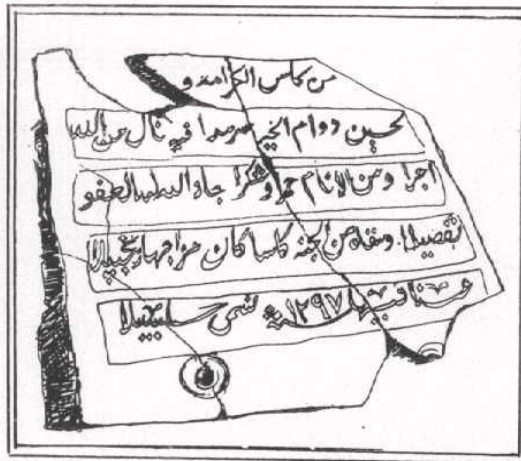 من كاس الكرامة و
لحسين دوام الخير سرمدا فيه نال من الله
اجرا ومن الانام حمدا وشكرا جاد الله بالعفو
تفضيلا وسقاه من الجنه كاسا كان مزاجها زنجبيلا
عينا فيها سنة ١٢٩٧ تسمى سلسبيلا